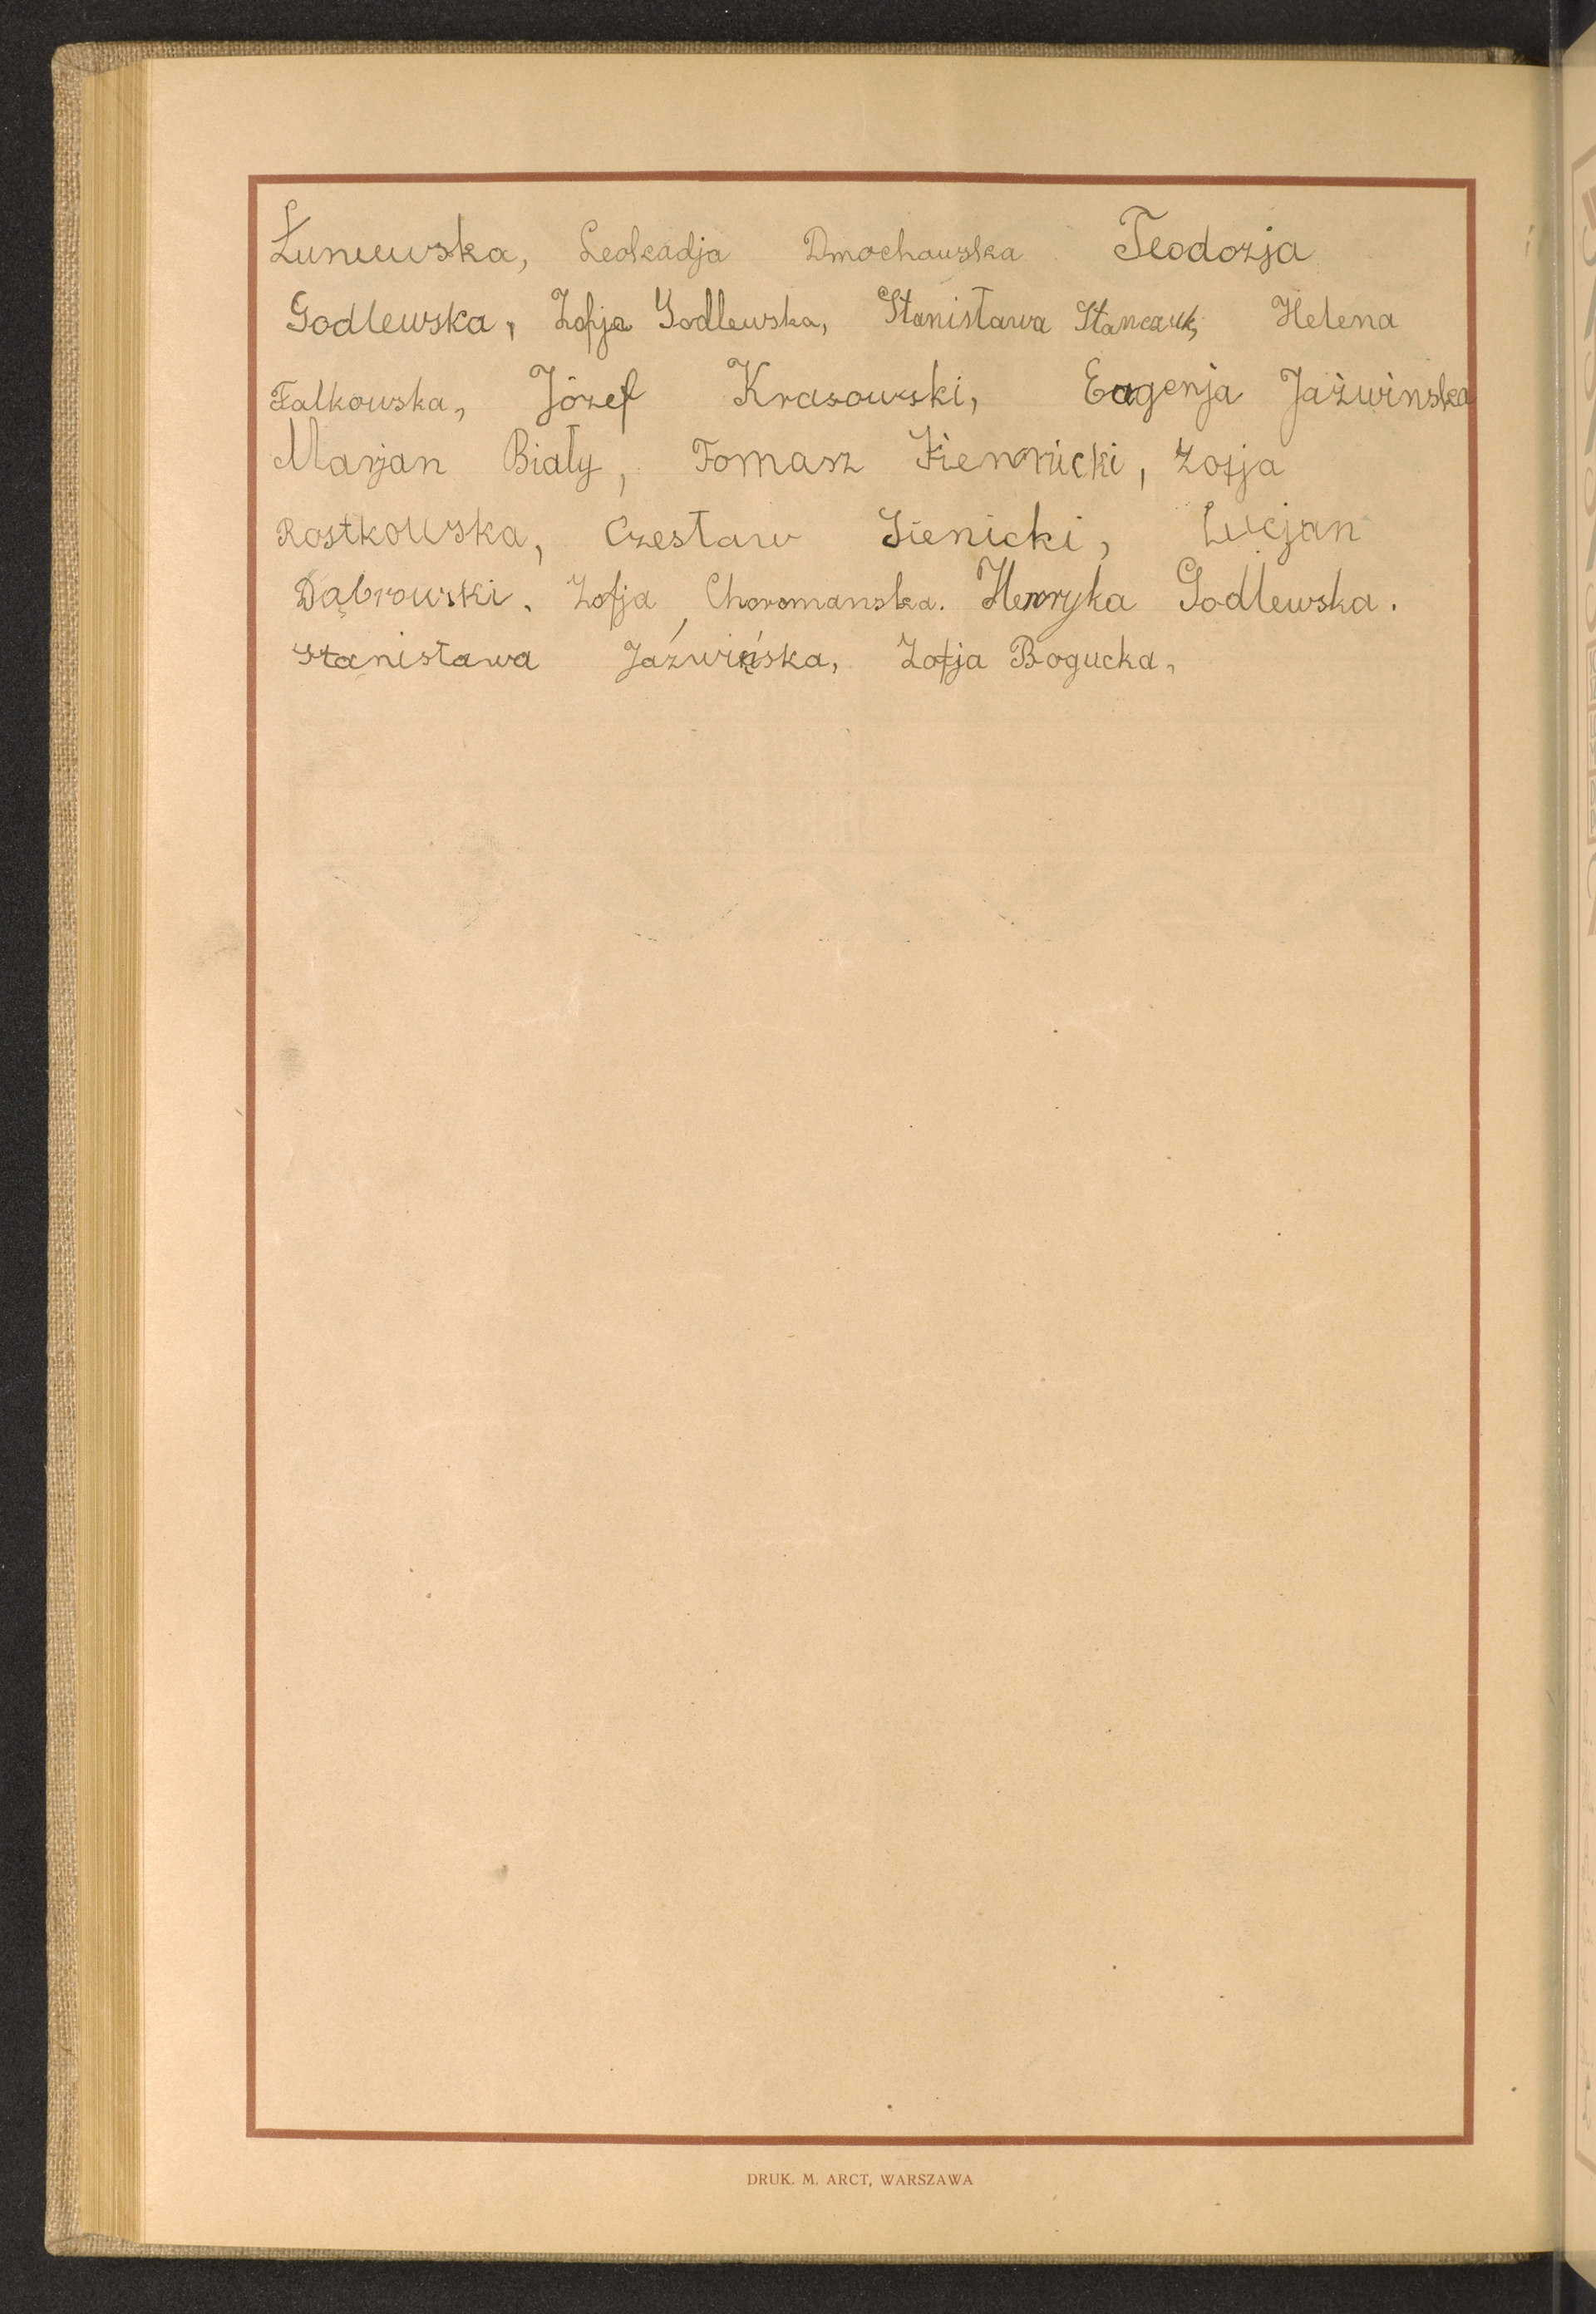 Łuniewska, Leokadja Dmochowska Teodozja
Godlewska, Zofja Godlewska, Stanisława Stanczuk, Helena
Falkowska, Józef Krasowski, Eugenja Jaźwinska
Marjan Biały, Tomasz Siennicki, Zofja
Rostkowska, Czesław Sienicki, Lucjan
Dąbrowski. Zofja Choromanska. Henryka Godlewska.
Stanisława Jaźwińska, Zofja Bogucka,
DRUK. M. ARCT, WARSZAWA